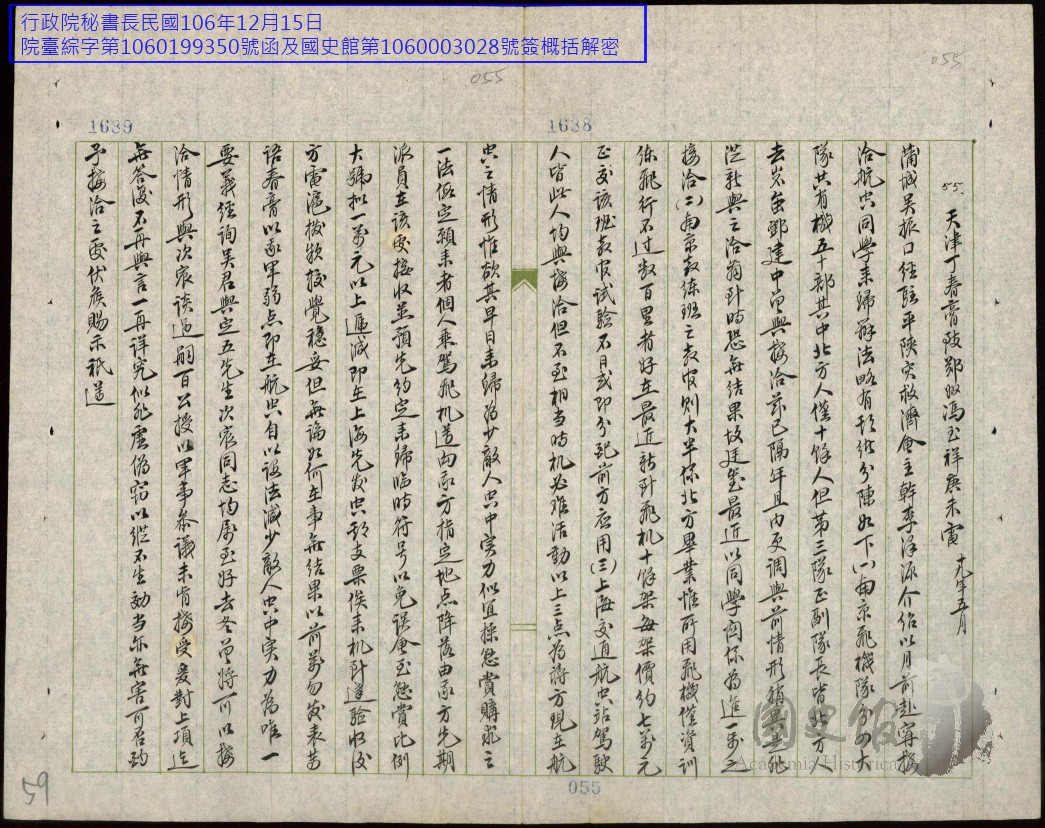 行政院秘書長民國106年12月15日
院臺綜字第1060199350號函及國史館第1060003028號簽概括解密
055
055
1639
1638
55. 天津丁春膏陂鄂奴馮玉祥庚未電 十九年五月
蒲城吳振口經駐平陝災救濟會主幹李 介紹以月前赴寧接
洽航空同學來歸辦法略有 分陳如下(一)南京飛機隊分四大
隊共有機五十部其中北方人僅十餘人但第三隊正副隊長皆北方人
去 鄧建中曾與接洽 已隔年且內更調與前情形稍異
與之洽 時恐無結果故 最近以同學關係為進一步之
接洽(二)南京教練班之教官則大半係北方畢業惟所用飛機僅資訓
練飛行不過數百里者好在最近新到飛机十餘架每架價約七萬元
正交該班教官試驗不日或即分配前方应用(三)上海交通航空站駕駛
人皆此人均與接洽但不至相当時机必难活動以上三点為蔣方現在航
空之情形惟欲其早日來歸為少敵人空中实力似宜採懸賞購求之
一法假定願來者個人乘駕飛机遥向我方指定地点降落由我方先期
派員在該處接收並預先约定來歸臨時符号以免误会至懸賞比例
大號拟一萬元以上遞減即在上海先发空頭支票俟來机到達驗收後
方電滬撥款較覺穩妥但無論如何在事無結果以前萬勿发表昔
語春膏以我軍弱点即在航空自以設法減少敵人空中实力為唯一
要義經詢吳君與定五先生次宸同志均屬至好去冬曾將可以接
洽情形與次宸談過嗣百公授以軍事參議未肯接受爰對上項迄
無答復不再與言一再詳究似非虛偽窃以縱不生効当亦無害可否約
予接洽之處伏候賜示祇遵
國史館
Academia Historica
055
59